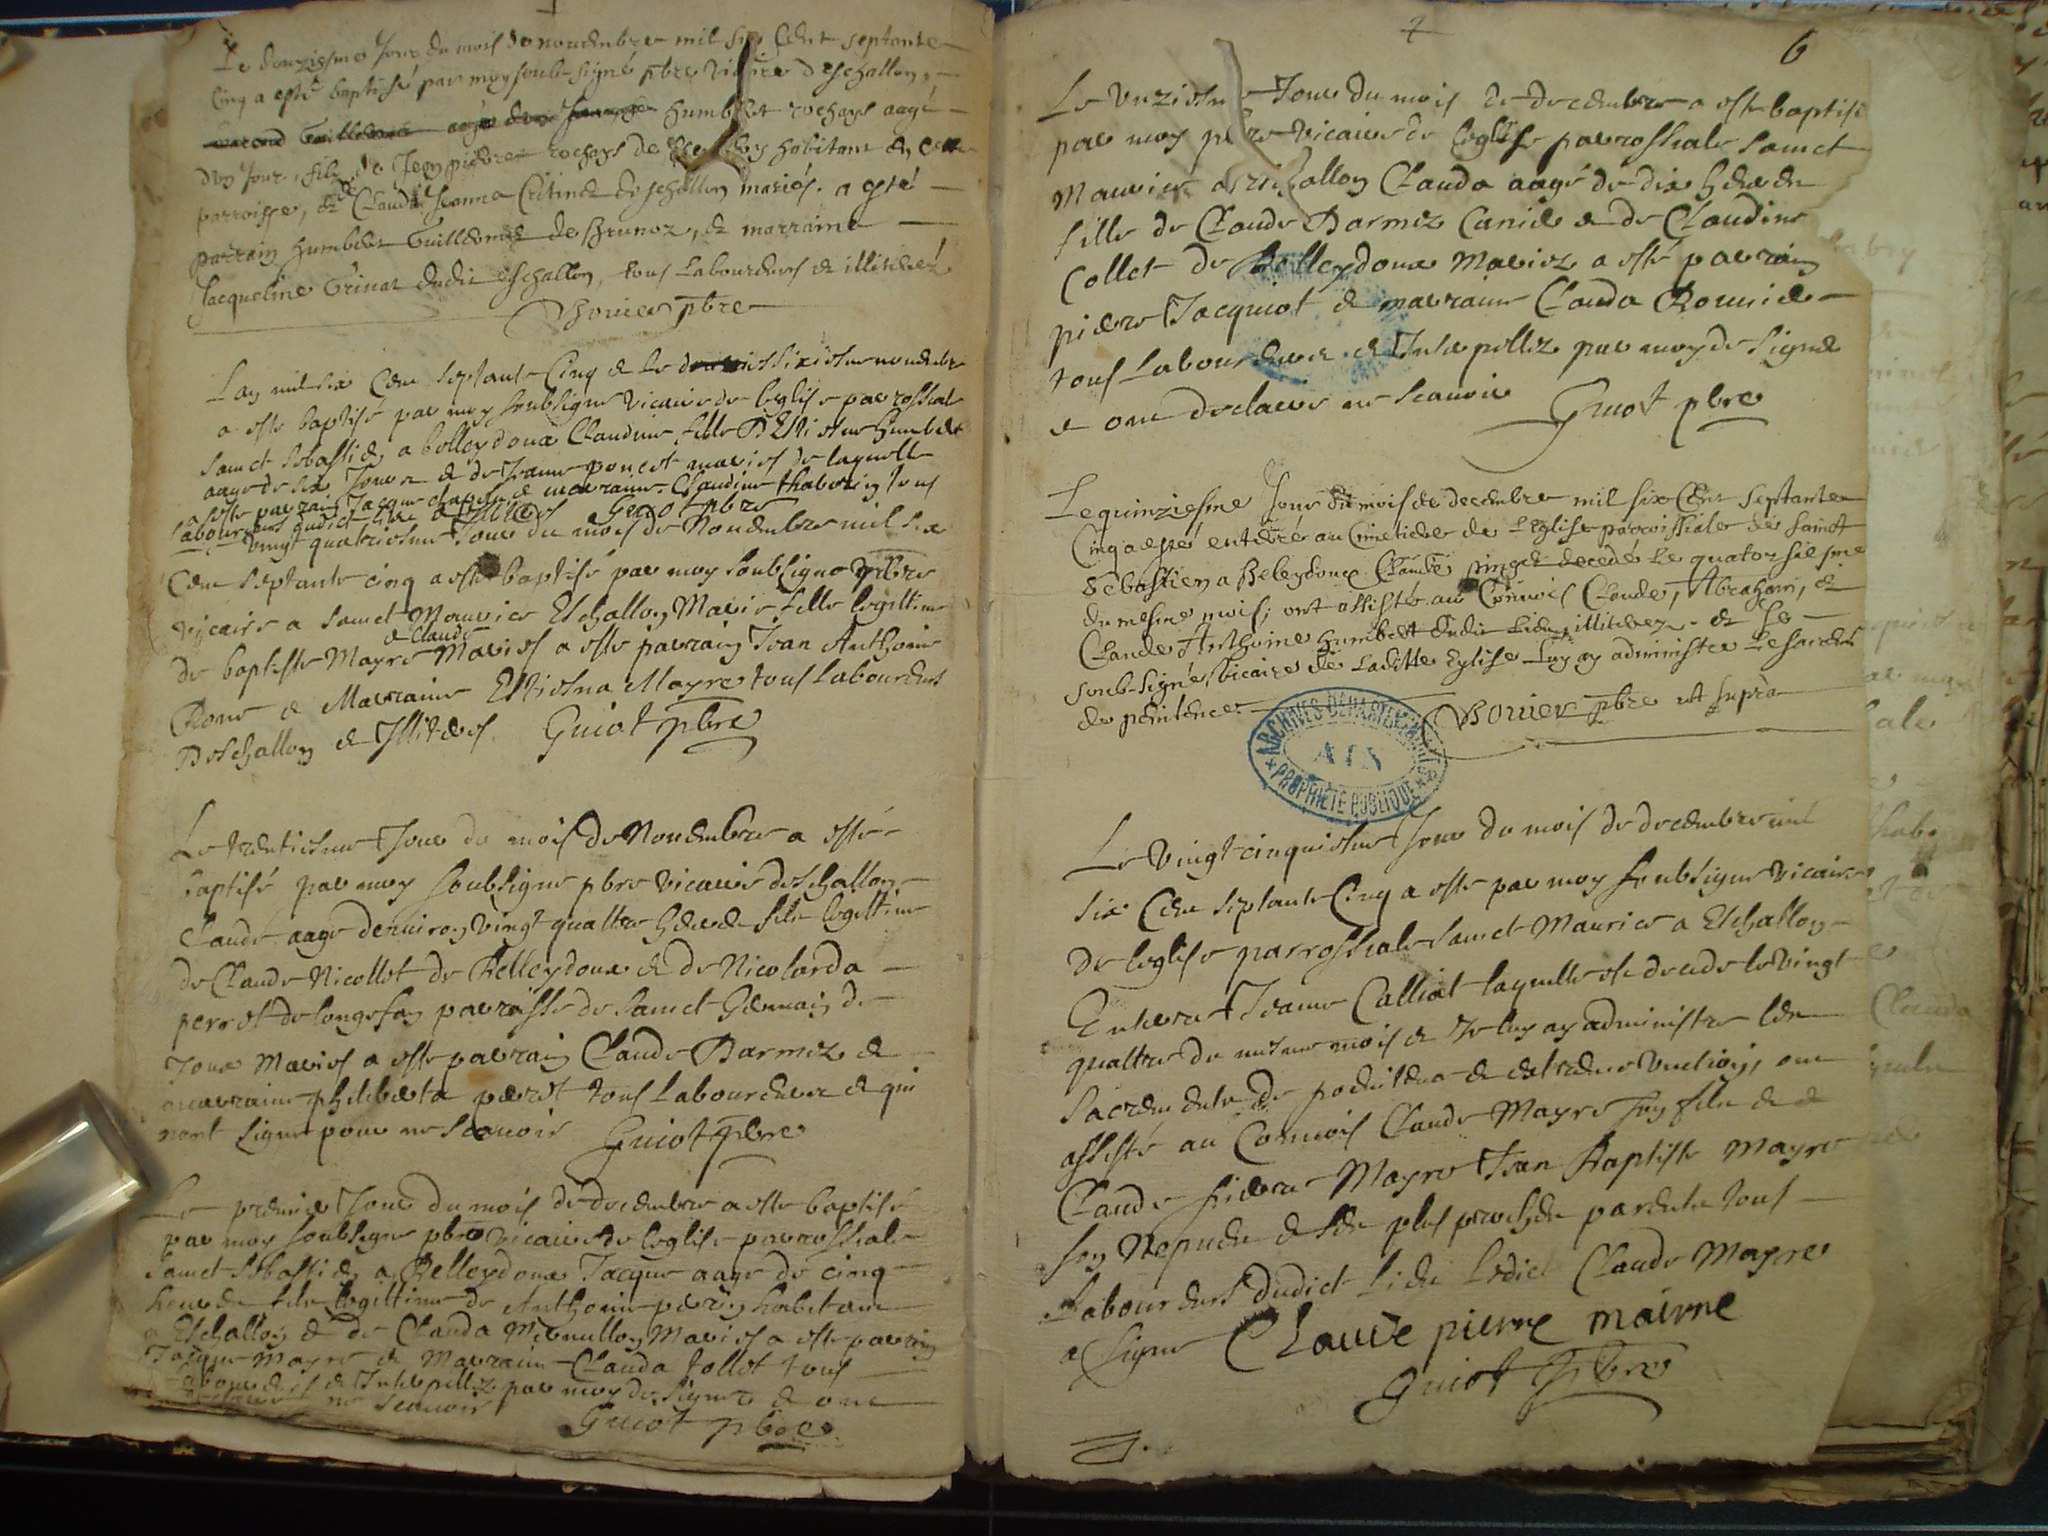 Le douziesme Jour du mois de novembre mil six Cent septante
Cinq a esté baptisé par moy soub-signé pbre vicaire deschallon,
humbert rochays aagé
dun jour, fils de Jean pierre rochays de habitant en cette
parroisse, et de Clauda Jeanna Critinet deschallon mariés. a esté
parrain humbert Guillermet de Brunoz, et marraine
Jacqueline Grinat dudit eschallon, tous Laboureurs et illiterez
Bouier pbre
Lan mil six Cent septante Cinq et le sixiesme novembre
a este baptisé par moy soubsigne vicaire de leglise parrossiale
sainct sebastien a belleydoux Claudine fille DEstiesne humbert
aage de six Jours et de Jeanne poncet maries de laquelle
a este parrain Jacque et marraine Claudine thabouring tous
Laboureurs dudict lieu et Illiteres Guiot pbre
vingt quatriesme Jour du mois de Novembre mil six
Cent septante cinq a este baptise par moy soubsigne pbre
vicaire a sainct Maurice Eschallon Marie fille legittime
& Claude
de baptiste Mayre Maries a este parrain Jean Anthoine
Rome et Marraine Estiesna Mayre tous Laboureurs
Deschallon et Illiteres. Guiot pbre
Le trentiesme Jour du mois de Novembre a esté
baptisé par moy soubsigne pbre vicaire deschallon
Claude aage denuiron vingt quattre heures fils legittime
de Claude Nicollet de Belleydoux et de Nicolarda
perrot de longefan parroisse de sainct Germain de
Joux Maries a este parrain Claude Darmez et
marraine philiberta perrot tous Laboureurs et qui
nont signe pour ne scauoir Guiot pbre
Le premier Jour du mois de decembre a este baptise
par moy soubsigne pbre vicaire de leglise parrossiale
sainct sebastien a Belleydoux Jacque aage de cinq
heures fils legittime de Anthoine perrin habitant
a Eschallon et de Clauda Mermillon Maries a este parrain
Jacque Mayre et Marraine Clauda Collet tous
Laboureurs et Interpellez par moy de signer et ont
declaire ne scauoir Guiot pbre
6
Le vnziesme Jour du mois de decembre a este baptise
par moy pbre vicaire de leglise parrossiale sainct
Maurice a eschallon Clauda aagé de dix heures
fille de Claude Darmez Caniez et de Claudine
Collet de Belleydoux Mariez a esté parrain
pierre Jacquiot et marraine Clauda Romiez
tous Laboureurs et Interpellez par moy de signer
et ont declaire ne scauoir Guiot pbre
Le quinziesme Jour du mois de decembre mil six Cent septante
Cinq a esté enterré au Cimetiere de LEglise parroissiale de sainct
Sebastien a Beleydoux Claude pinget decedé Le quatorsiesme
du mesme mois; ont assisté au Conuois Claude, Abraham, et
Claude Anthoine humbert dudit Lieu, illiterez. et Je
soub-signé, vicaire de Laditte Eglise Luy ay administré Le sacrement
de penitence. Bouier pbre ut supra
ARCHIVES DÉPARTEMENTALES
AIN
PROPRIÉTÉ PUBLIQUE
Le vingt cinquiesme Jour du mois de decembre mil
six Cent septante Cinq a este par moy soubsigne vicaire
de leglise parrossiale sainct Maurice a Eschallon
Enterre Jeanne Calliat laquelle est decede le vingt
quattre du mesme mois et Je luy ay administre les
sacrements de penitence et extreme unction, ont
assisté au Conuois Claude Mayre son fils et
Claude pierre Mayre Jean Baptiste Mayre
son Nepueu et ses plus proches parents tous
Laboureurs dudict Lieu Ledict Claude Mayre
a signe Claude pierre mairre
Guiot pbre